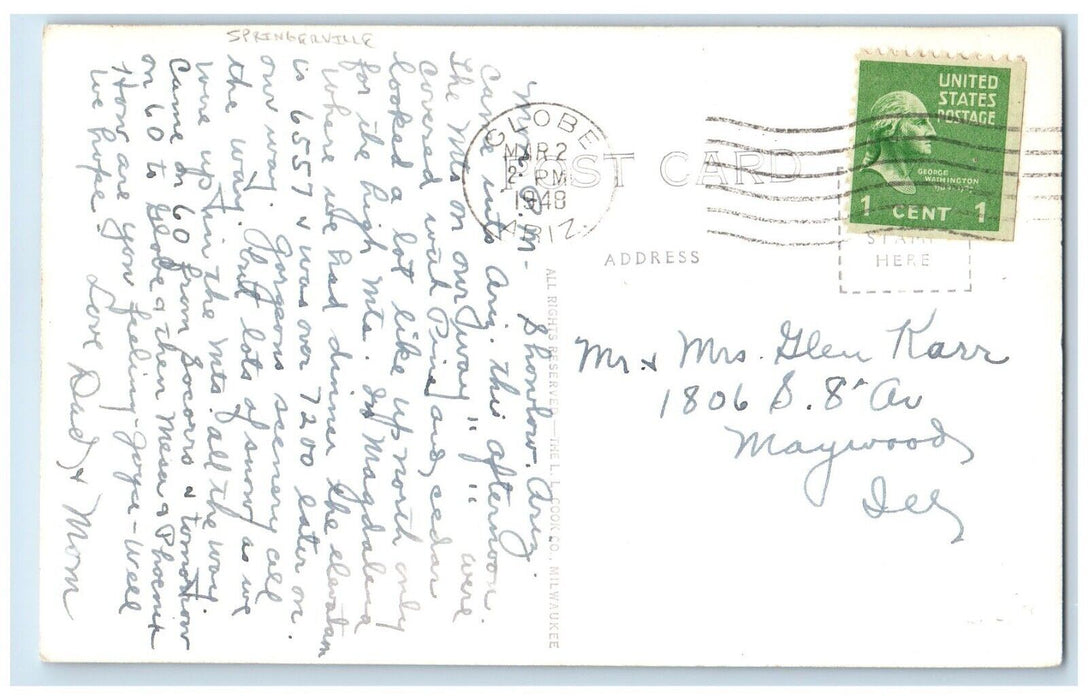 SPRINGERVILLE
Showlow. Ariz.
Came into Ariz. this afternoon.
The Mts on our way " " were
covered with Pine and cedar
looked a lot like up north only
for the high Mts. In Magdalena
where we had dinner the elevation
is 6557 & was over 7200 later on
our way. Gorgeous scenery all
the way. But lots of snow as we
were up in the mts. all the way
Came on 60 from Socorro & tomorrow
on 60 to Globe & then Mesa & Phoenix
How are you feeling - Joyce - Well
we hope. Love Dad & Mom
GLOBE
MAR 2
2 PM
1948
ARIZ.
POST CARD
UNITED
STATES
POSTAGE
GEORGE
WASHINGTON
1 CENT 1
STAMP
HERE
ADDRESS
ALL RIGHTS RESERVED - THE L. L. COOK CO., MILWAUKEE
Mr & Mrs. Glen Karr
1806 S. 8" Av
Maywood
Ill